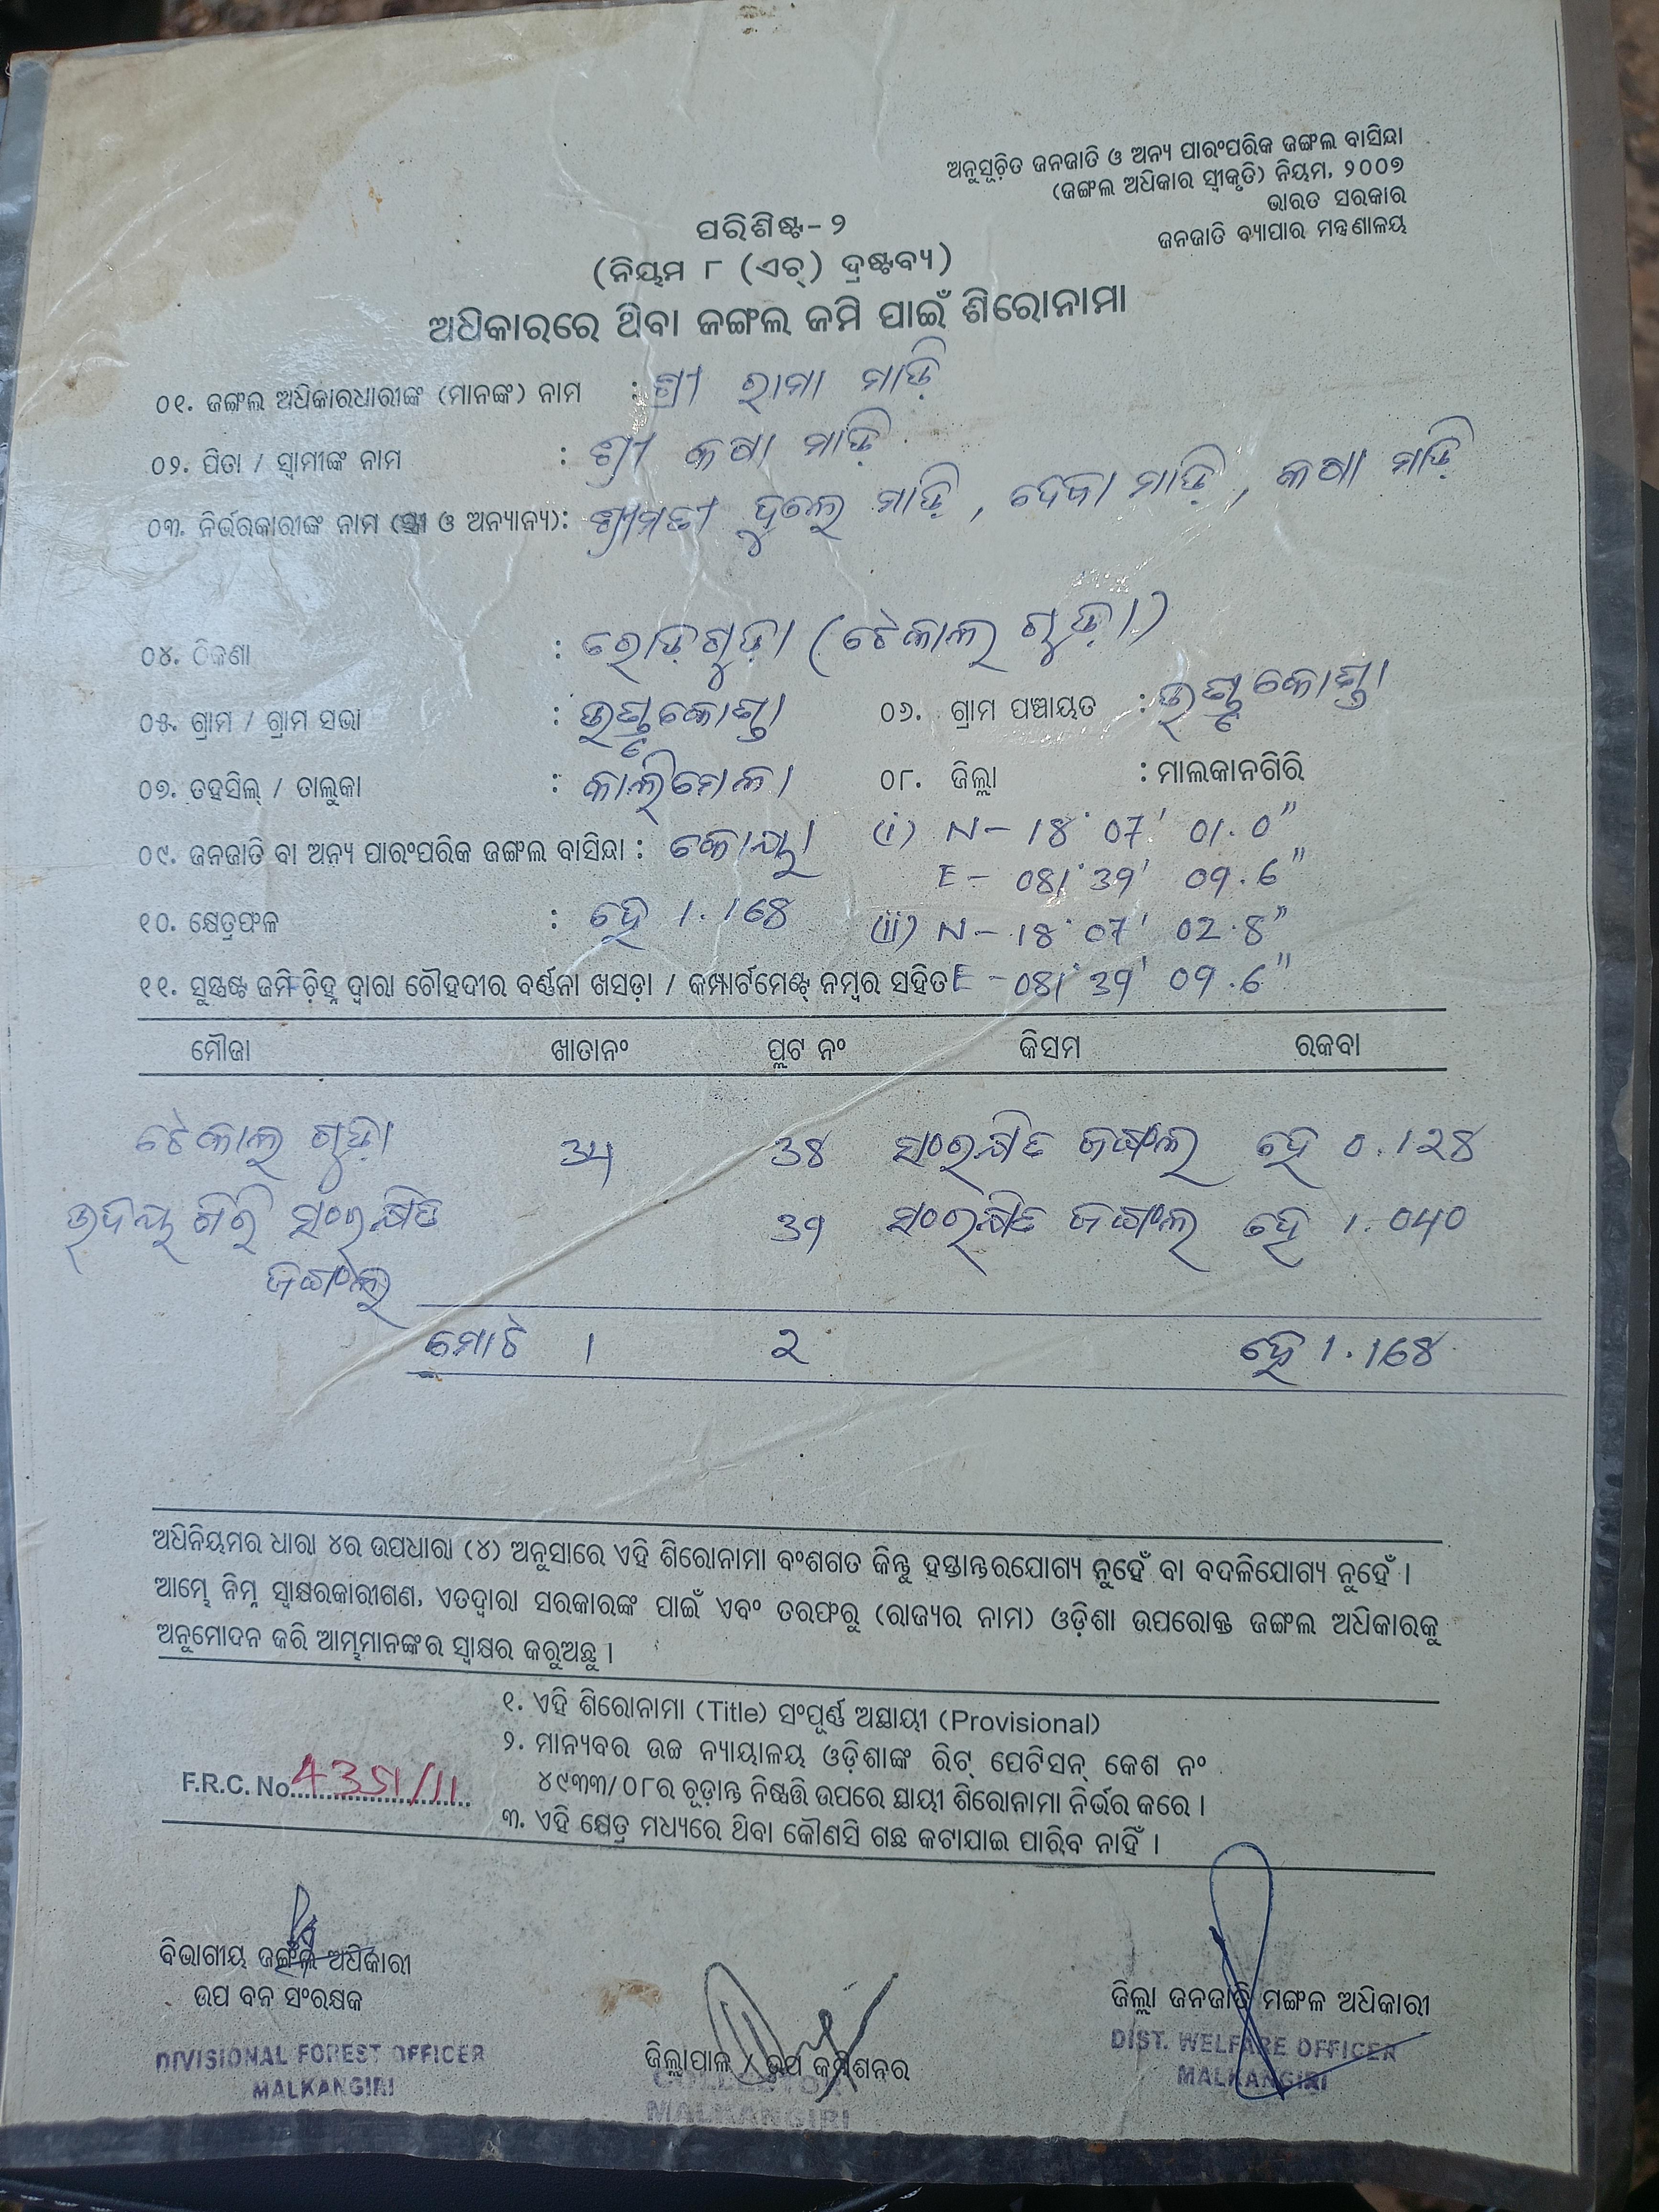 ଅନୁସୂଚିତ ଜନଜାତି ଓ ଅନ୍ୟ ପାରଂପରିକ ଜଙ୍ଗଲ ବାସିନ୍ଦା
(ଜଙ୍ଗଲ ଅଧିକାର ସ୍ୱୀକୃତି) ନିୟମ, ୨୦୦୭
ଭାରତ ସରକାର
ଜନଜାତି ବ୍ୟାପାର ମନ୍ତ୍ରଣାଳୟ
ପରିଶିଷ୍ଟ-୨
(ନିୟମ ୮ (ଏଚ୍) ଦ୍ରଷ୍ଟବ୍ୟ)
ଅଧିକାରରେ ଥିବା ଜଙ୍ଗଲ ଜମି ପାଇଁ ଶିରୋନାମା
୦୧. ଜଙ୍ଗଲ ଅଧିକାରଧାରୀଙ୍କ (ମାନଙ୍କ) ନାମ : ଶ୍ରୀ ରାମା ମାଡ଼ି
୦୨. ପିତା / ସ୍ୱାମୀଙ୍କ ନାମ : ଶ୍ରୀ କଷା ମାଡ଼ି
୦୩. ନିର୍ଭରକାରୀଙ୍କ ନାମ (ସ୍ତ୍ରୀ ଓ ଅନ୍ୟାନ୍ୟ): ଶ୍ରୀମତୀ ଦୁଲେ ମାଡ଼ି, ଦେବା ମାଡ଼ି, କଷା ମାଡ଼ି
୦୪. ଠିକଣା : ରୋଡ଼ଗୁଡ଼ା (ଟେକାଲ ଗୁଡ଼ା)
୦୫. ଗ୍ରାମ / ଗ୍ରାମ ସଭା : ଉଣ୍ଡୁକୋଣ୍ଡା ୦୬. ଗ୍ରାମ ପଞ୍ଚାୟତ : ଉଣ୍ଡୁକୋଣ୍ଡା
୦୭. ତହସିଲ୍ / ତାଲୁକା : କାଲିମେଳା ୦୮. ଜିଲ୍ଲା : ମାଲକାନଗିରି
୦୯. ଜନଜାତି ବା ଅନ୍ୟ ପାରଂପରିକ ଜଙ୍ଗଲ ବାସିନ୍ଦା : କୋୟା (i) N- 18° 07' 01.0"
E- 081° 39' 09.6"
୧୦. କ୍ଷେତ୍ରଫଳ : ହେ 1.168 (ii) N- 18° 07' 02.8"
୧୧. ସୁସ୍ପଷ୍ଟ ଜମି ଚିହ୍ନ ଦ୍ୱାରା ଚୌହଦୀର ବର୍ଣ୍ଣନା ଖସଡ଼ା / କମ୍ପାର୍ଟମେଣ୍ଟ୍ ନମ୍ବର ସହିତ E- 081° 39' 09.6"
ମୌଜା ଖାତାନଂ ପ୍ଲଟ ନଂ କିସମ ରକବା
ଟେକାଲ ଗୁଡ଼ା 34 38 ସଂରକ୍ଷିତ ଜଙ୍ଗଲ ହେ 0.128
ଉଦୟ ଗିରି ସଂରକ୍ଷିତ 39 ସଂରକ୍ଷିତ ଜଙ୍ଗଲ ହେ 1.040
ଜଙ୍ଗଲ
ମୋଟ 1 2 ହେ 1.168
ଅଧିନିୟମର ଧାରା ୪ର ଉପଧାରା (୪) ଅନୁସାରେ ଏହି ଶିରୋନାମା ବଂଶଗତ କିନ୍ତୁ ହସ୍ତାନ୍ତରଯୋଗ୍ୟ ନୁହେଁ ବା ବଦଳିଯୋଗ୍ୟ ନୁହେଁ ।
ଆମ୍ଭେ ନିମ୍ନ ସ୍ୱାକ୍ଷରକାରୀଗଣ, ଏତଦ୍ୱାରା ସରକାରଙ୍କ ପାଇଁ ଏବଂ ତରଫରୁ (ରାଜ୍ୟର ନାମ) ଓଡ଼ିଶା ଉପରୋକ୍ତ ଜଙ୍ଗଲ ଅଧିକାରକୁ
ଅନୁମୋଦନ କରି ଆମ୍ଭମାନଙ୍କର ସ୍ୱାକ୍ଷର କରୁଅଛୁ ।
୧. ଏହି ଶିରୋନାମା (Title) ସଂପୂର୍ଣ୍ଣ ଅସ୍ଥାୟୀ (Provisional)
୨. ମାନ୍ୟବର ଉଚ୍ଚ ନ୍ୟାୟାଳୟ ଓଡ଼ିଶାଙ୍କ ରିଟ୍ ପେଟିସନ୍ କେଶ ନଂ
୪୯୩୩/୦୮ର ଚୂଡ଼ାନ୍ତ ନିଷ୍ପତ୍ତି ଉପରେ ସ୍ଥାୟୀ ଶିରୋନାମା ନିର୍ଭର କରେ ।
F.R.C. No. 4351/11
୩. ଏହି କ୍ଷେତ୍ର ମଧ୍ୟରେ ଥିବା କୌଣସି ଗଛ କଟାଯାଇ ପାରିବ ନାହିଁ ।
ବିଭାଗୀୟ ଜଙ୍ଗଲ ଅଧିକାରୀ
ଉପ ବନ ସଂରକ୍ଷକ
DIVISIONAL FOREST OFFICER
MALKANGIRI
ଜିଲ୍ଲାପାଳ / ଉପ କମିଶନର
COLLECTOR
MALKANGIRI
ଜିଲ୍ଲା ଜନଜାତି ମଙ୍ଗଳ ଅଧିକାରୀ
DIST. WELFARE OFFICER
MALKANGIRI